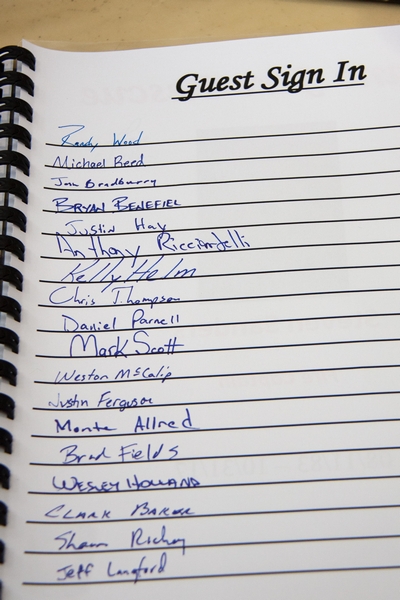 Guest Sign In
Randy Wood
Michael Reed
Jon Bradburry
BRYAN BENEFIEL
Justin Hay
Anthony Ricciardelli
Kelly Helm
Chris Thompson
Daniel Parnell
Mark Scott
Weston McCalip
Justin Ferguson
Monte Allred
Brad Fields
WESLEY HOLLAND
CLARK BAKER
Shawn Richey
Jeff Langford